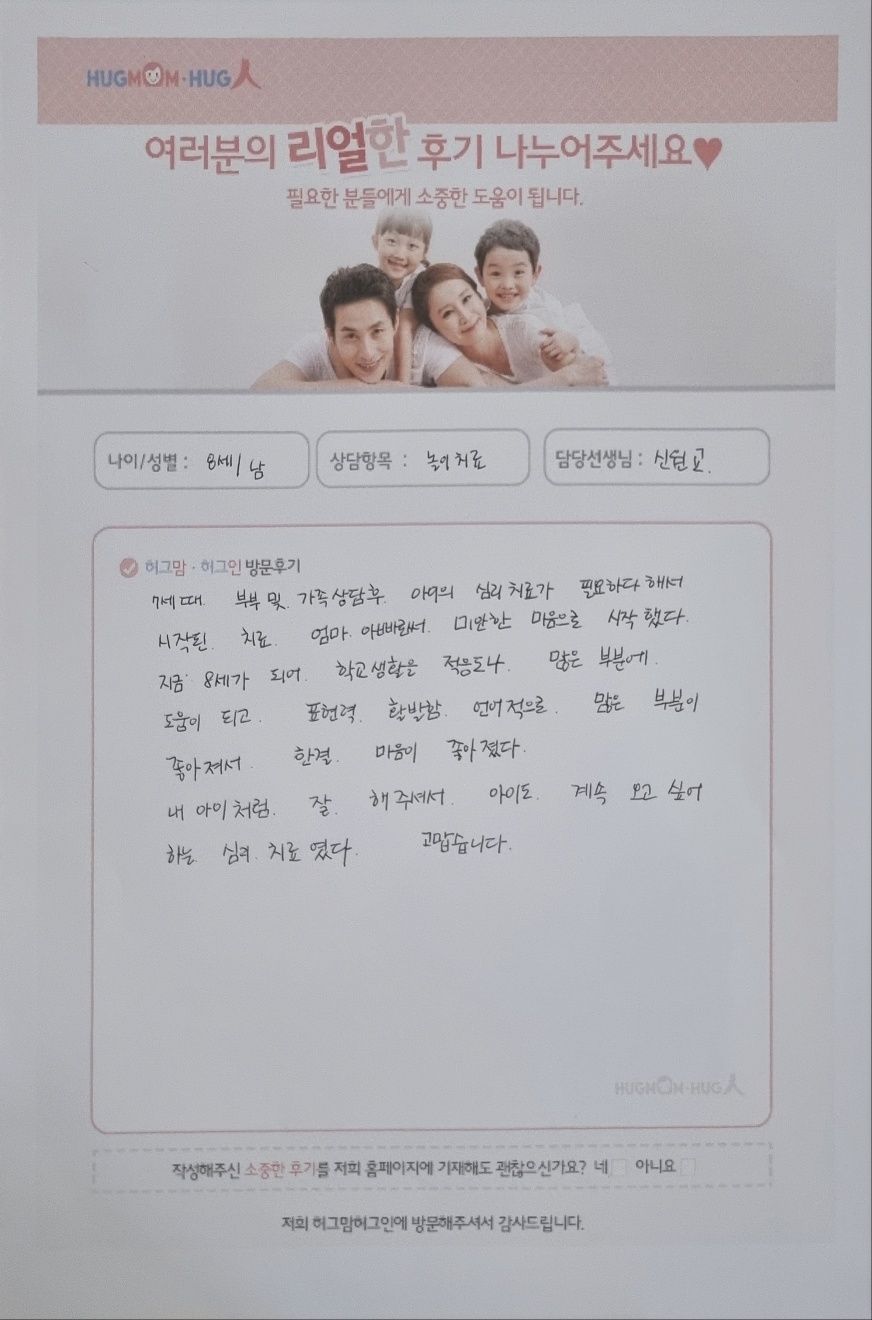 HUGMOM·HUG人
여러분의 리얼한 후기 나누어주세요♥
필요한 분들에게 소중한 도움이 됩니다.
나이/성별 : 8세/남
상담항목 : 놀이치료
담당선생님 : 신원교.
허그맘·허그인 방문후기
7세때. 부부 및. 가족상담후. 아이의 심리치료가 필요하다 해서
시작된. 치료. 엄마. 아빠로써. 미안한 마음으로 시작 했다.
지금 8세가 되어. 학교생활을 적응도나. 많은 부분에.
도움이 되고. 표현력. 활발함. 언어적으로. 많은 부분이
좋아져서. 한결. 마음이 좋아졌다.
내 아이처럼. 잘. 해주셔서. 아이도. 계속 오고 싶어
하는. 심리. 치료였다. 고맙습니다.
HUGMOM·HUG人
작성해주신 소중한 후기를 저희 홈페이지에 기재해도 괜찮으신가요? 네□ 아니요□
저희 허그맘허그인에 방문해주셔서 감사드립니다.